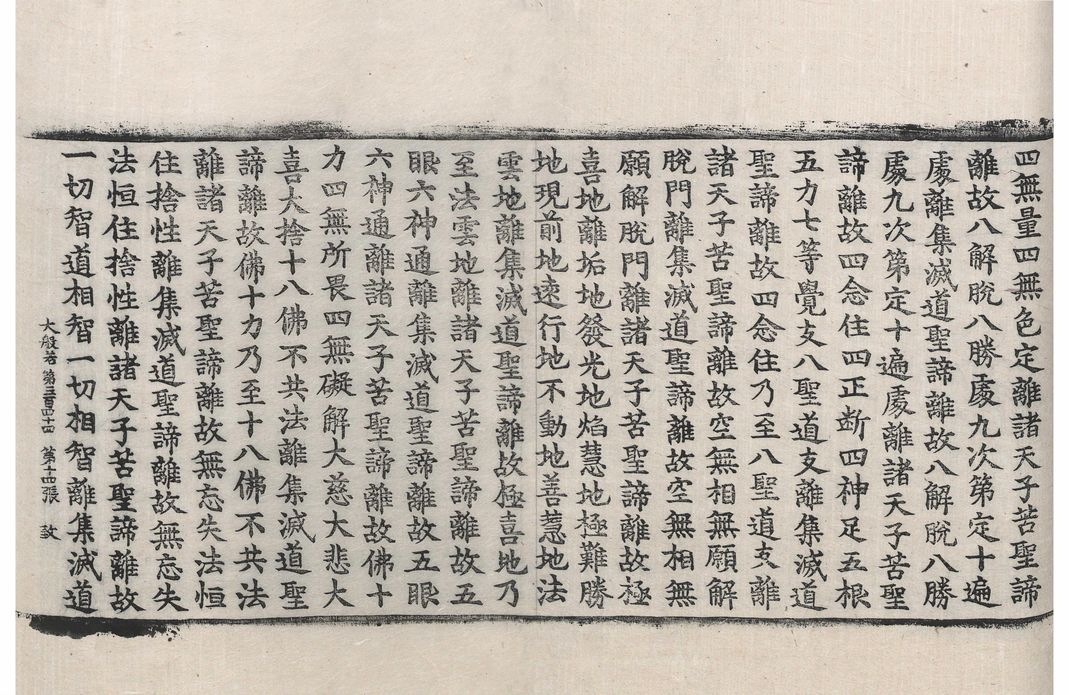 四無量四無色定離諸天子苦聖諦
離故八解脫八勝處九次第定十遍
處離集滅道聖諦離故八解脫八勝
處九次第定十遍處離諸天子苦聖
諦離故四念住四正斷四神足五根
五力七等覺支八聖道支離集滅道
聖諦離故四念住乃至八聖道支離
諸天子苦聖諦離故空無相無願解
脫門離集滅道聖諦離故空無相無
願解脫門離諸天子苦聖諦離故極
喜地離垢地發光地焰慧地極難勝
地現前地遠行地不動地善慧地法
雲地離集滅道聖諦離故極喜地乃
至法雲地離諸天子苦聖諦離故五
眼六神通離集滅道聖諦離故五眼
六神通離諸天子苦聖諦離故佛十
力四無所畏四無礙解大慈大悲大
喜大捨十八佛不共法離集滅道聖
諦離故佛十力乃至十八佛不共法
離諸天子苦聖諦離故無忘失法恒
住捨性離集滅道聖諦離故無忘失
法恒住捨性離諸天子苦聖諦離故
一切智道相智一切相智離集滅道
大般若第三百四十四 第十四張